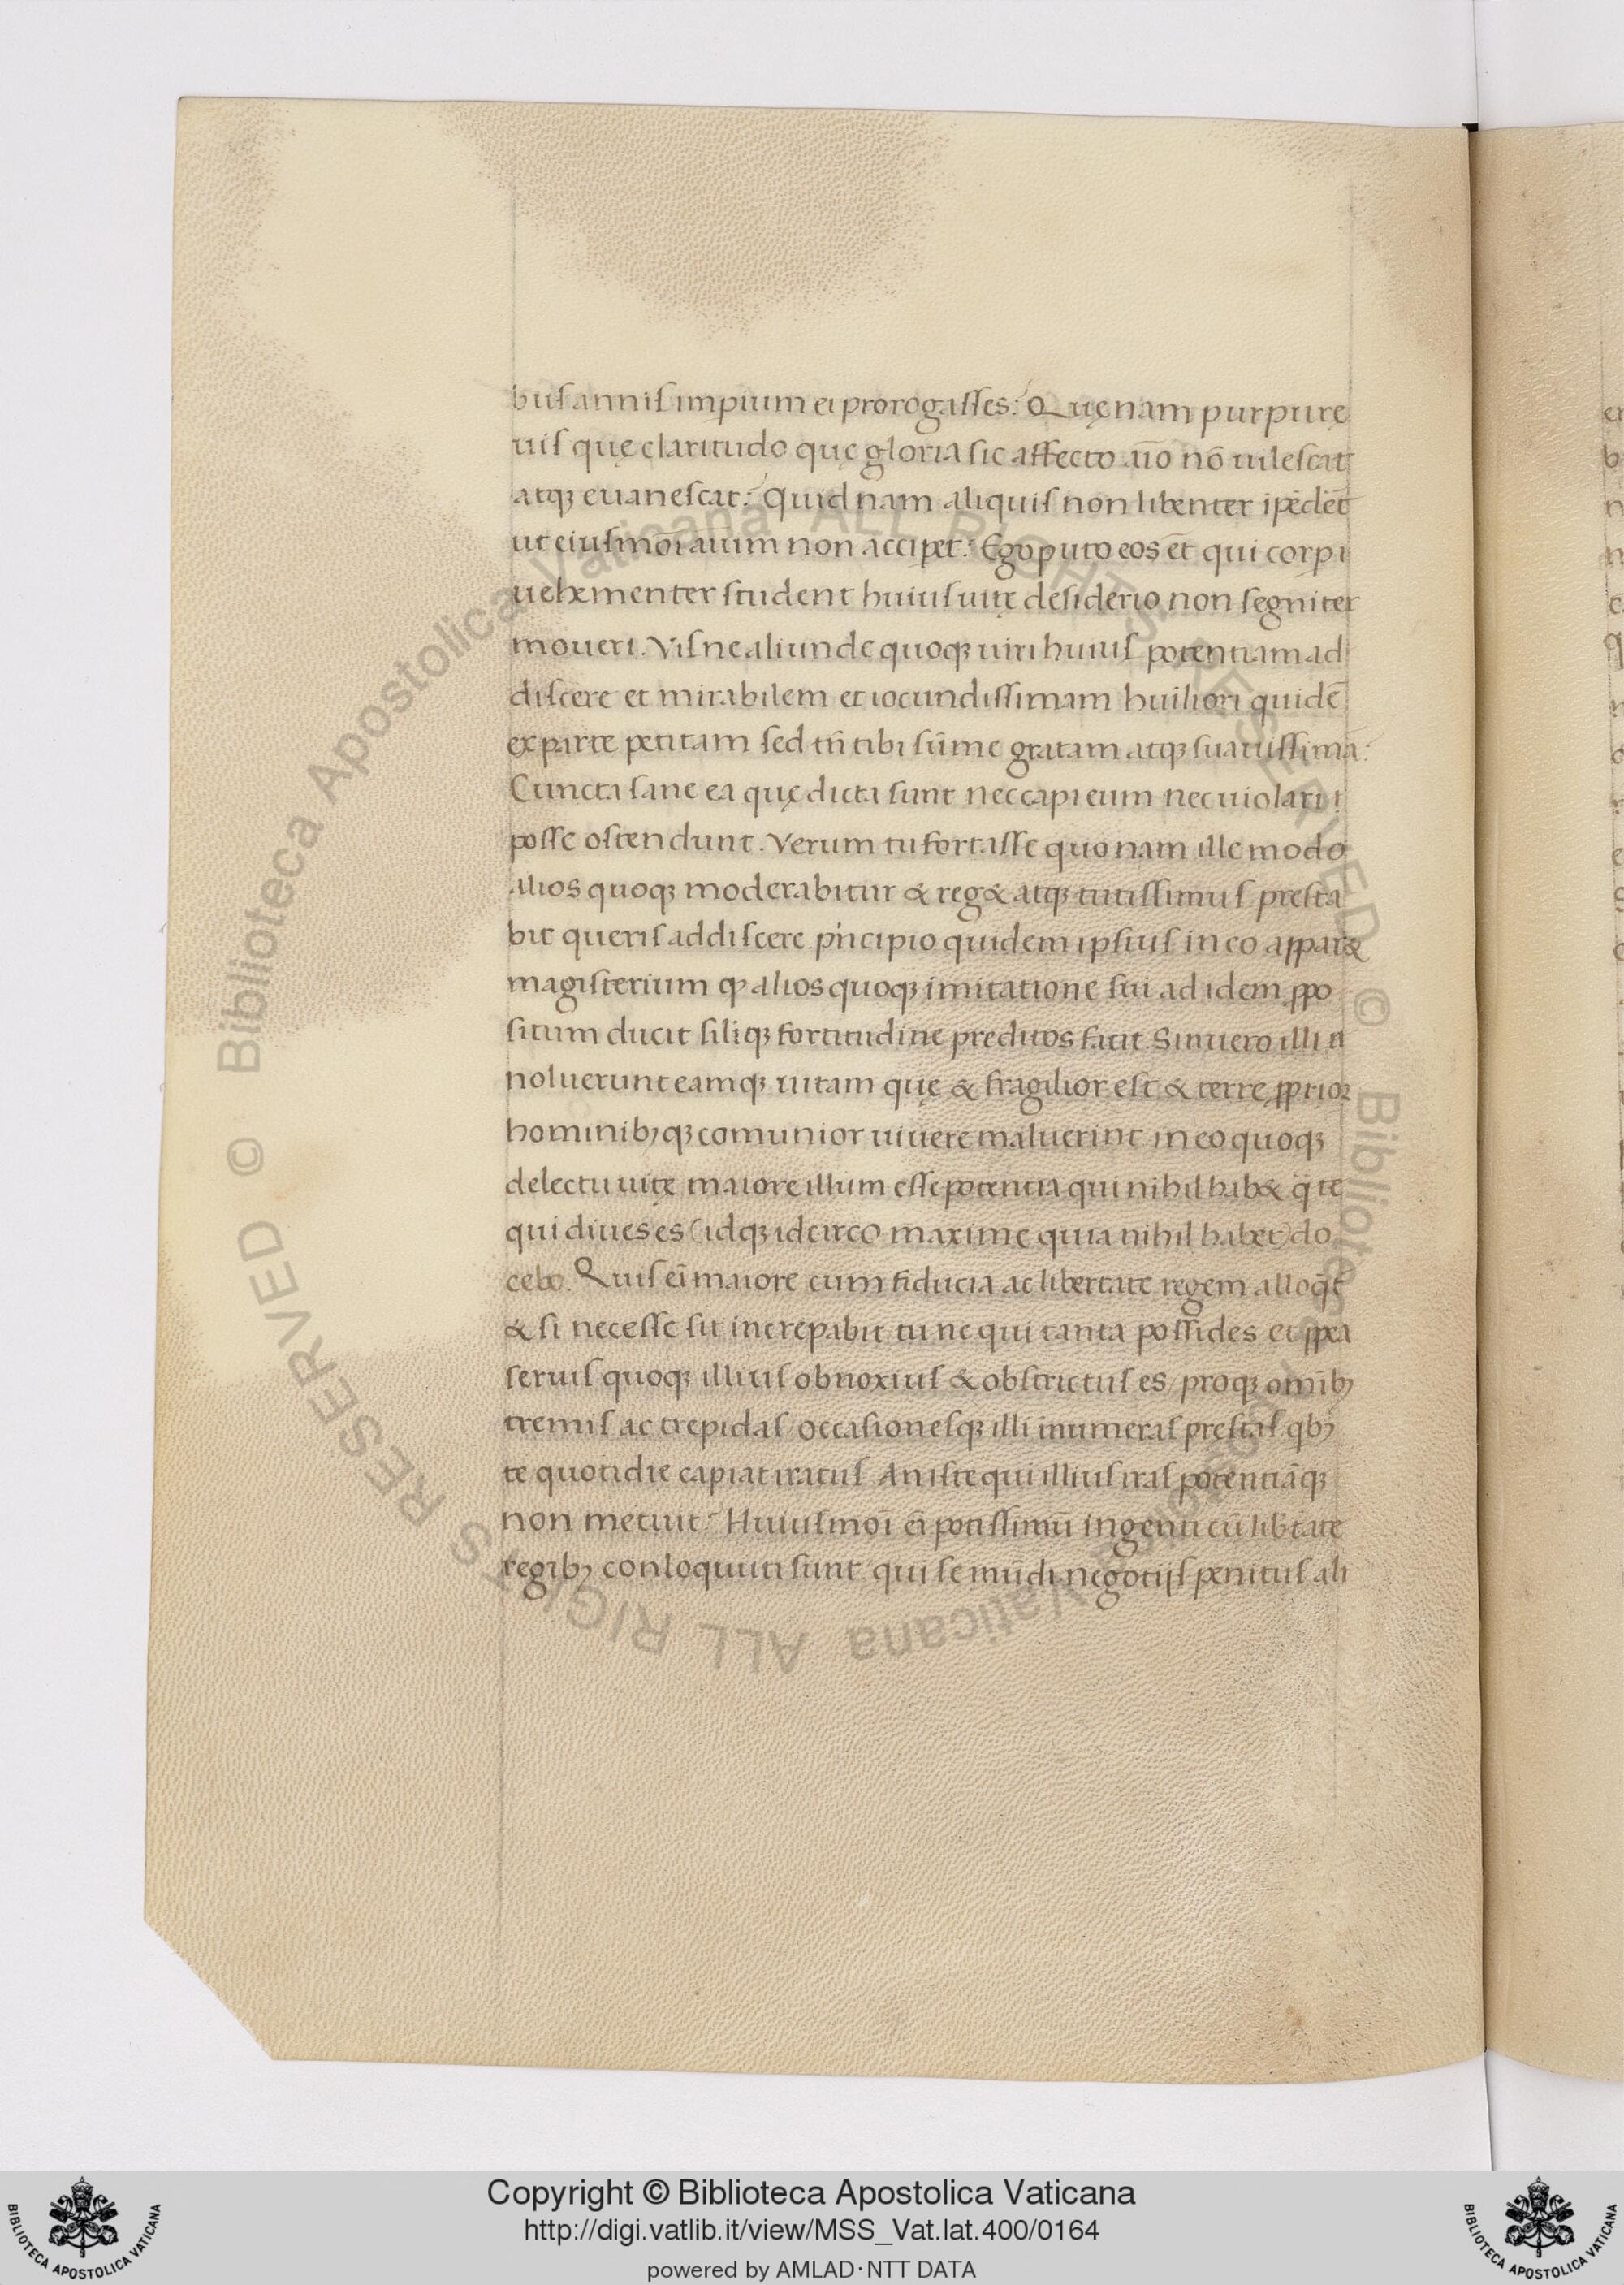 buſ anniſ impium ei prorogaſſes: Quęnam purpurę
uiſ quę claritudo quę gloria ſic affecto aīo nō uileſcat
atqꝫ euaneſcat: Quid nam aliquiſ non libenter ipēdēt
ut eiuſmōi aīum non accipet: Ego puto eos et̄ qui corpi
uehementer ſtudent huiuſ uitę deſiderio non ſegniter
moueri. Viſne aliunde quoqꝫ uiri huiuſ potentiam ad
diſcere et mirabilem et iocundiſſimam huīliori quidē
ex parte petitam ſed tn̄ tibi ſūme gratam atqꝫ ſuauiſſimā:
Cuncta ſane ea quę dicta ſunt nec capi eum nec uiolari
poſſe oſtendunt. Verum tu fortaſſe quonam ille modo
alios quoqꝫ moderabitur & reg& atqꝫ tutiſſimuſ preſta
bit queriſ addiſcere. pͥncipio quidem ipſiuſ in eo appar&
magiſterium ꝙ alios quoqꝫ imitatione ſui ad idem ꝓpo
ſitum ducit ſiliqꝫ fortitudine preditos facit. Sin uero illi
noluerunt eamqꝫ uitam quę & fragilior eſt & terrę ꝓprior
hominibꝫqꝫ comunior uiuere maluerint in eo quoqꝫ
delectu uitę maiore illum eſſe potentia qui nihil hab& q̈ te
qui diues es (idqꝫ idcirco maxime quia nihil habet) do
cebo. Quiſ ei̅ maiore cum fiducia ac libertate regem alloq̄t
& ſi neceſſe ſit increpabit tu ne qui tanta poſſides et ꝓpea
ſeruiſ quoqꝫ illiuſ obnoxiuſ & obſtrictuſ es/ proqꝫ omībꝫ
tremiſ ac trepidaſ/ occaſioneſqꝫ illi inumeraſ preſtaſ qbꝫ
te quotidie capiat iratuſ An iſte qui illiuſ iraſ potentiāqꝫ
non metuit: Huiuſmōi ei̅ potiſſimū ingenti cū lib̄tate
regibꝫ conloquuti ſunt qui ſe mūdi negotijſ penituſ ab
© Biblioteca Apostolica Vaticana ALL RIGHTS RESERVED © Biblioteca Apostolica Vaticana ALL RIGHTS RESERVED
Copyright © Biblioteca Apostolica Vaticana
http://digi.vatlib.it/view/MSS_Vat.lat.400/0164
powered by AMLAD·NTT DATA
BIBLIOTECA APOSTOLICA VATICANA
BIBLIOTECA APOSTOLICA VATICANA